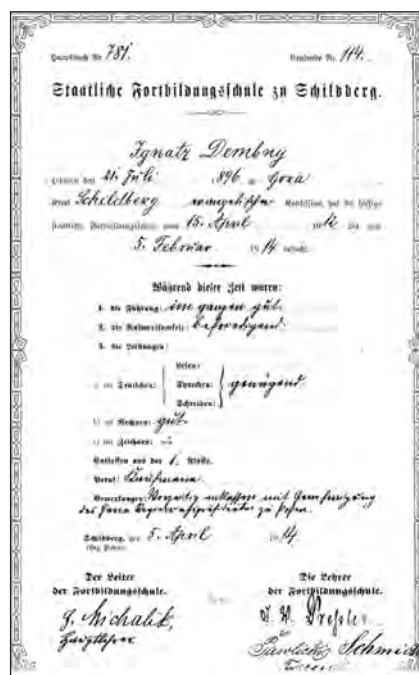 Hauptbuch Nr. 781. Laufende Nr. 114.
Staatliche Fortbildungsschule zu Schildberg.
Ignatz Dembny
geboren den 21. Juli 1896 zu Gora
Kreis Schildberg Konfession, hat die hiesige
staatliche Fortbildungsschule vom 15. April 1912 bis zum
5. Februar 1914 besucht.
Während dieser Zeit waren:
1. die Führung: im ganzen gut.
2. die Aufmerksamkeit: befriedigend
3. die Leistungen:
a) im Deutschen: Lesen:
Sprechen: genügend
Schreiben:
b) im Rechnen: gut.
c) im Zeichnen:
Entlassen aus der 1. Klasse.
Beruf: Kaufmann
Bemerkungen: Vorzeitig entlassen mit Genehmigung
des Herrn Regierungspräsidenten zu Posen.
Schildberg, den 5. April 1914
(Bez. Posen)
Der Leiter Die Lehrer
der Fortbildungsschule. der Fortbildungsschule.
Michalik,
Hauptlehrer.
Pawlicki Schmidt